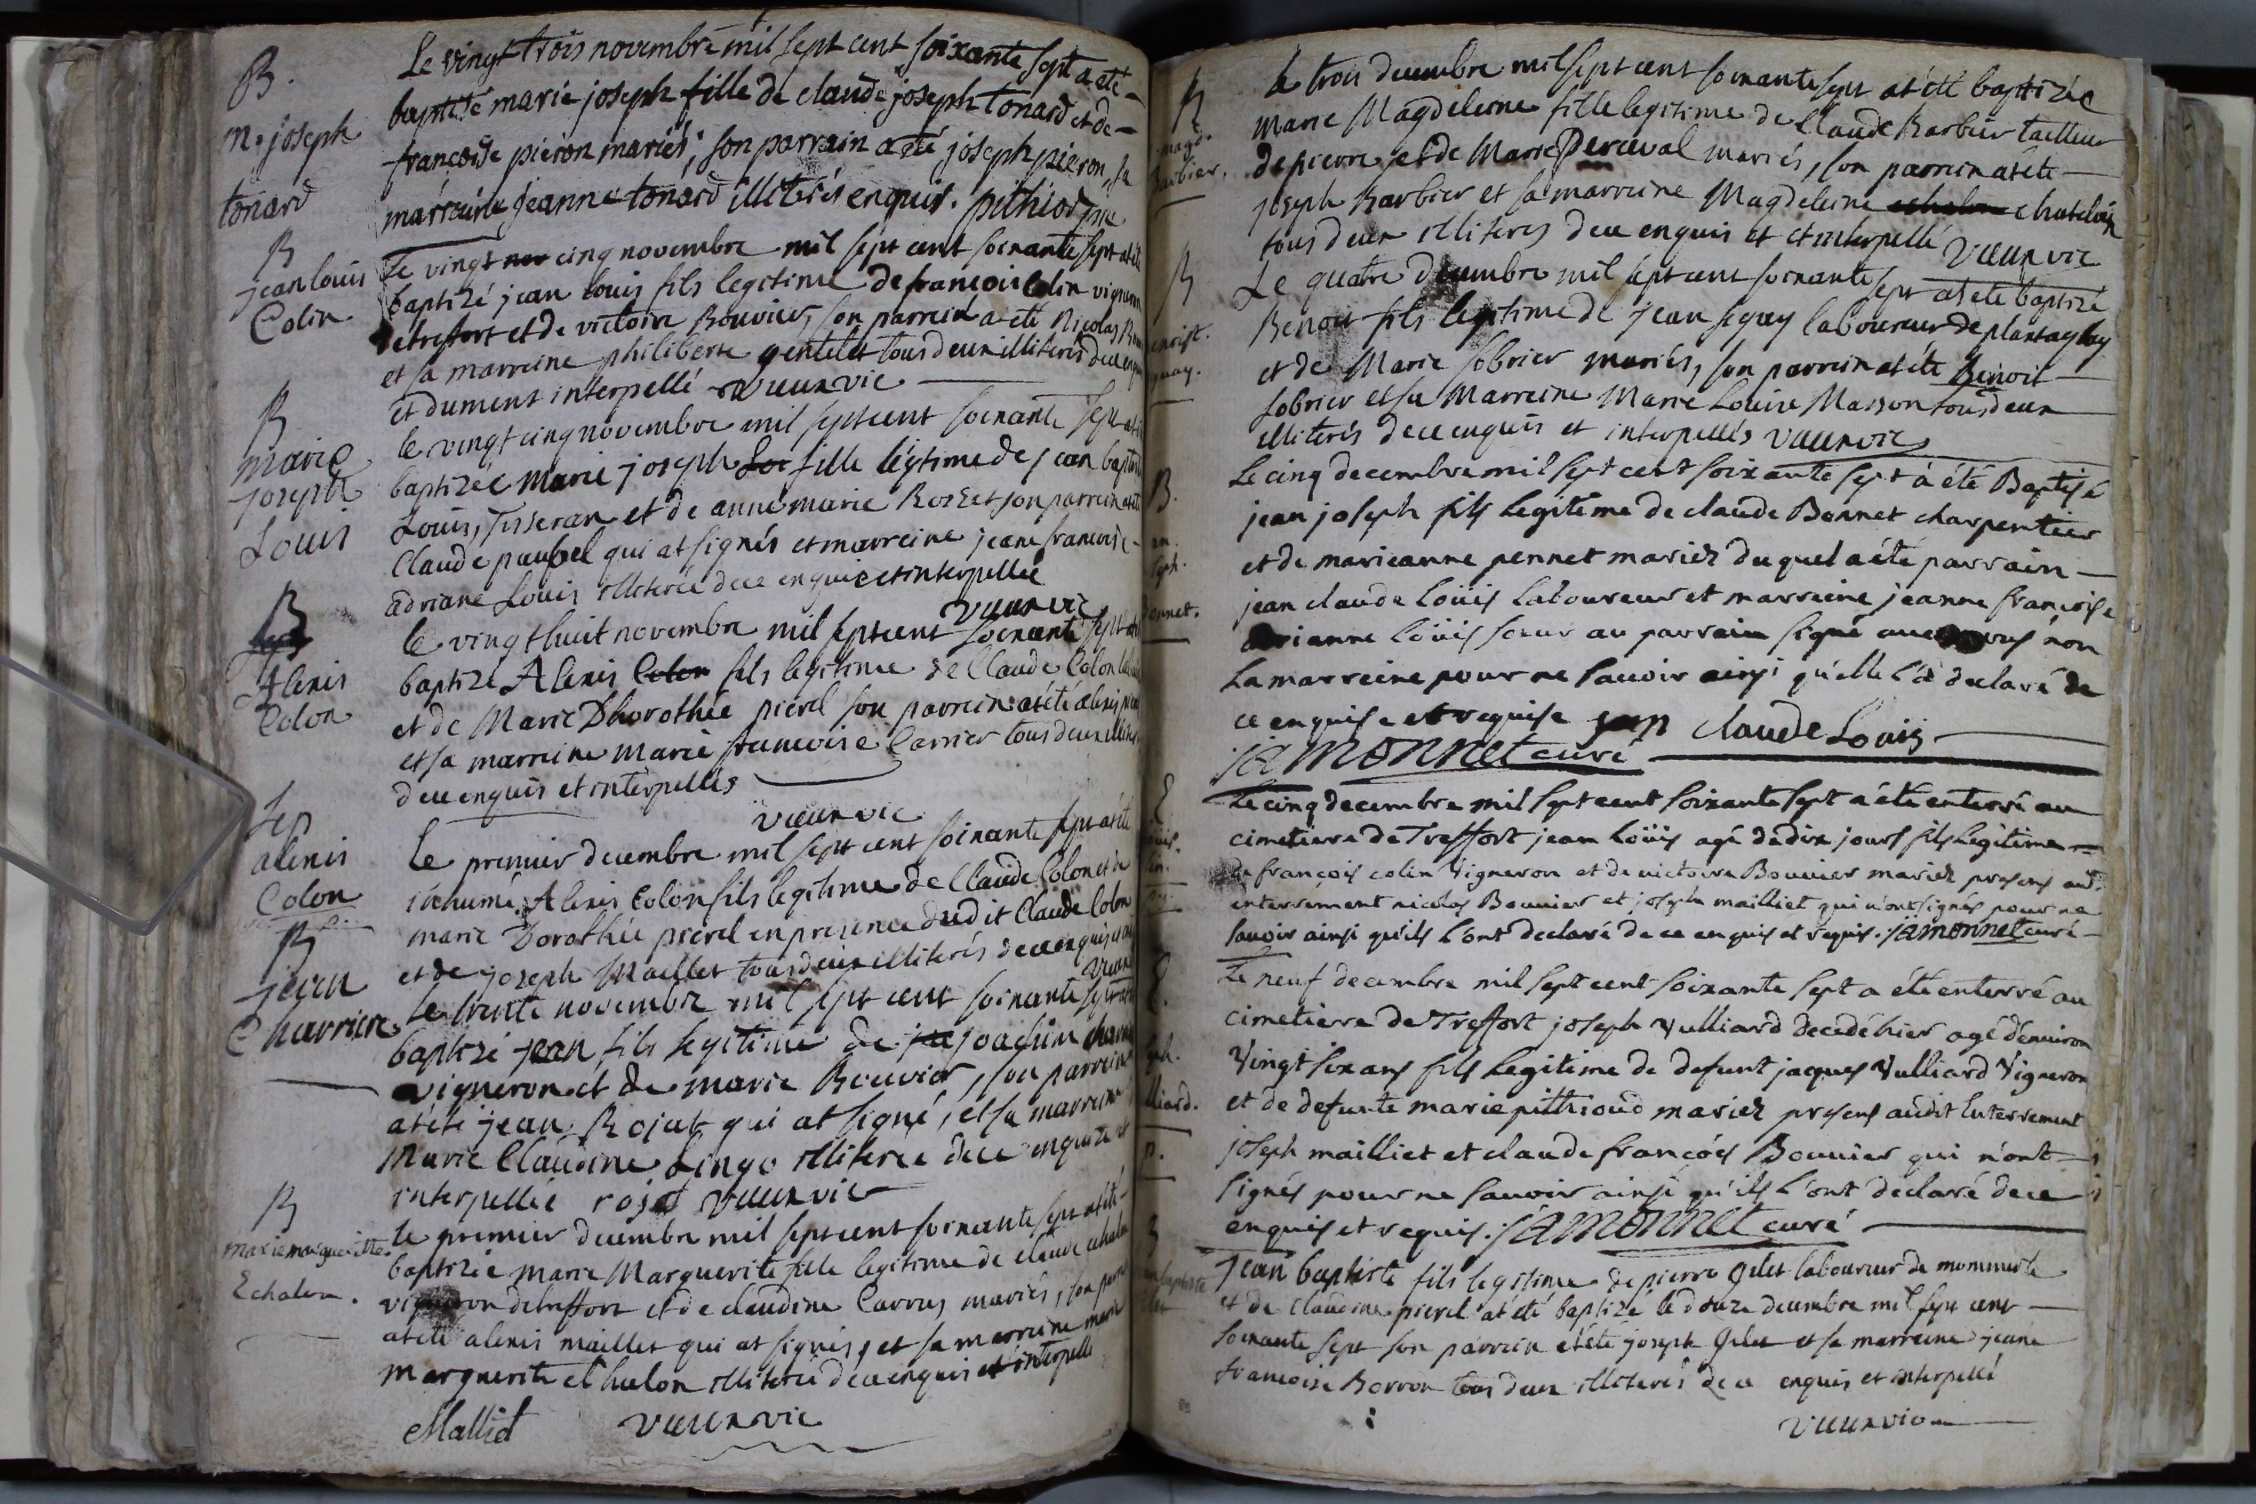 B.
m. joseph
tonard
Le vingt trois novembre mil sept cent soixante sept a eté
baptisé marie joseph fille de claude joseph tonard et de
françoise pieron mariés, son parrain a eté joseph pieron, sa
marreine jeanne tonard illiterés enquis. pithiod
B
jean louis
Colin.
le vingt cinq novembre mil sept cent soixante sept at été
baptizé jean louis fils legitime de francois Colin vigneron
de treffort et de victoire Bouvier, son parrein a eté Nicolas
et sa marreine philiberte gentelet tous deux illiterés de ce enquis
et dument interpellé vuurvic
B
marie
joseph
Louis
le vingt cinq novembre mil sept cent soixante sept at été
baptizée marie joseph fille légitime de jean baptiste
Louis, Tisseran et de anne marie Rozet son parrein at été
Claude paubel qui at signés et marreine jeane francoise
adriane Louis illiterée de ce enquise et interpellée
vuurvic
B
Alexis
Colon
le vingt huit novembre mil sept cent soixante sept
baptizé Alexis Colon fils legitime de Claude Colon
et de Marie Dhorothée pierel son parrein at été alexis
et sa marreine marie francoise Carrier tous deux
de ce enquis et interpellés
vuurvic
Sep
alexis
Colon
le premier decembre mil sept cent soixante sept at été
inhumé Alexis Colon fils legitime de Claude Colon et de
marie Dorothée pierel en presence dudit Claude Colon
et de joseph Maillet tous deux illiterés de ce enquis
B
jean
Charriere
le trente novembre mil sept cent soixante sept
baptizé jean fils legitime de joachim
vigneron et de marie Bouvier, son parrein
at été jean Rojat qui at signé, et sa marreine
Marie Claudine Lingo illiterée de ce enquise et
interpellée rojat vuurvic
B
marie marguerite
Echalon.
le premier decembre mil sept cent soixante sept at été
baptizée marie Marguerite fille legitime de claude echalon
vigneron de treffort et de claudine Carrus mariés, son parrein
at été alexis maillet qui at signés, et sa marreine marie
marguerite echalon illiterée de ce enquis et interpellé
Mallit vuurvic
B
magd.
Barbier.
le trois decembre mil sept cent soixante sept at été baptizée
Marie Magdeleine fille legitime de Claude Barbier tailleur
de pierre et de Marie Perceval mariés, son parrein at été
joseph Barbier et sa marreine Magdeleine chatelain
tous deux illiterés de ce enquis et interpellé vuurvic
B
Le quatre decembre mil sept cent soixante sept at eté baptizé
Benoit fils legitime de jean seguy laboureur de plantaglay
et de Marie sobrier mariés, son parrein at été Benoit
sobrier et sa Marreine Marie Louise Masson tous deux
illiterés de ce enquis et interpellés vuurvic
B.
Le cinq decembre mil sept cent soixante sept à été Baptisé
jean joseph fils legitime de claude Bonnet charpentier
et de marieanne pennet mariez du quel a été parrain
jean claude loüis laboureur et marreine jeanne françoise
adrianne loüis soeur au parrain signé avec nous non
la marreine pour ne sauoir ainsi qu'elle l'a declaré de
ce enquise et requise jean claude Louis
jamonnet curé
Le cinq decembre mil sept cent soixante sept a été enterré au
cimetiere de Treffort jean loüis agé de dix jours fils legitime
de françois colin Vigneron et de victoire Bouuier mariez presens aud.
enterrement nicolas Bouuier et joseph mailliet qui n'ont signés pour ne
sauoir ainsi qu'ils l'ont declaré de ce enquis et requis. jamonnet curé
Le neuf decembre mil sept cent soixante sept a été enterré au
cimetiere de Treffort joseph Vulliard decedé hier agé d'enuiron
Vingt six ans fils legitime de defunt jacques Vulliard Vigneron
et de defunte marie pithioud mariez presens audit Enterrement
joseph mailliet et claude françois Bouuier qui n'ont
signés pour ne sauoir ainsi qu'ils l'ont declaré de ce
enquis et requis. jamonnet curé
jean baptiste fils legitime de pierre Gelet laboureur de mommerle
et de Claudine pierel at été baptizé le douze decembre mil sept cent
soixante sept son parrein at été joseph Gelet et sa marreine jeane
francoise Borron tous deux illiterés de ce enquis et interpellé
vuurvic